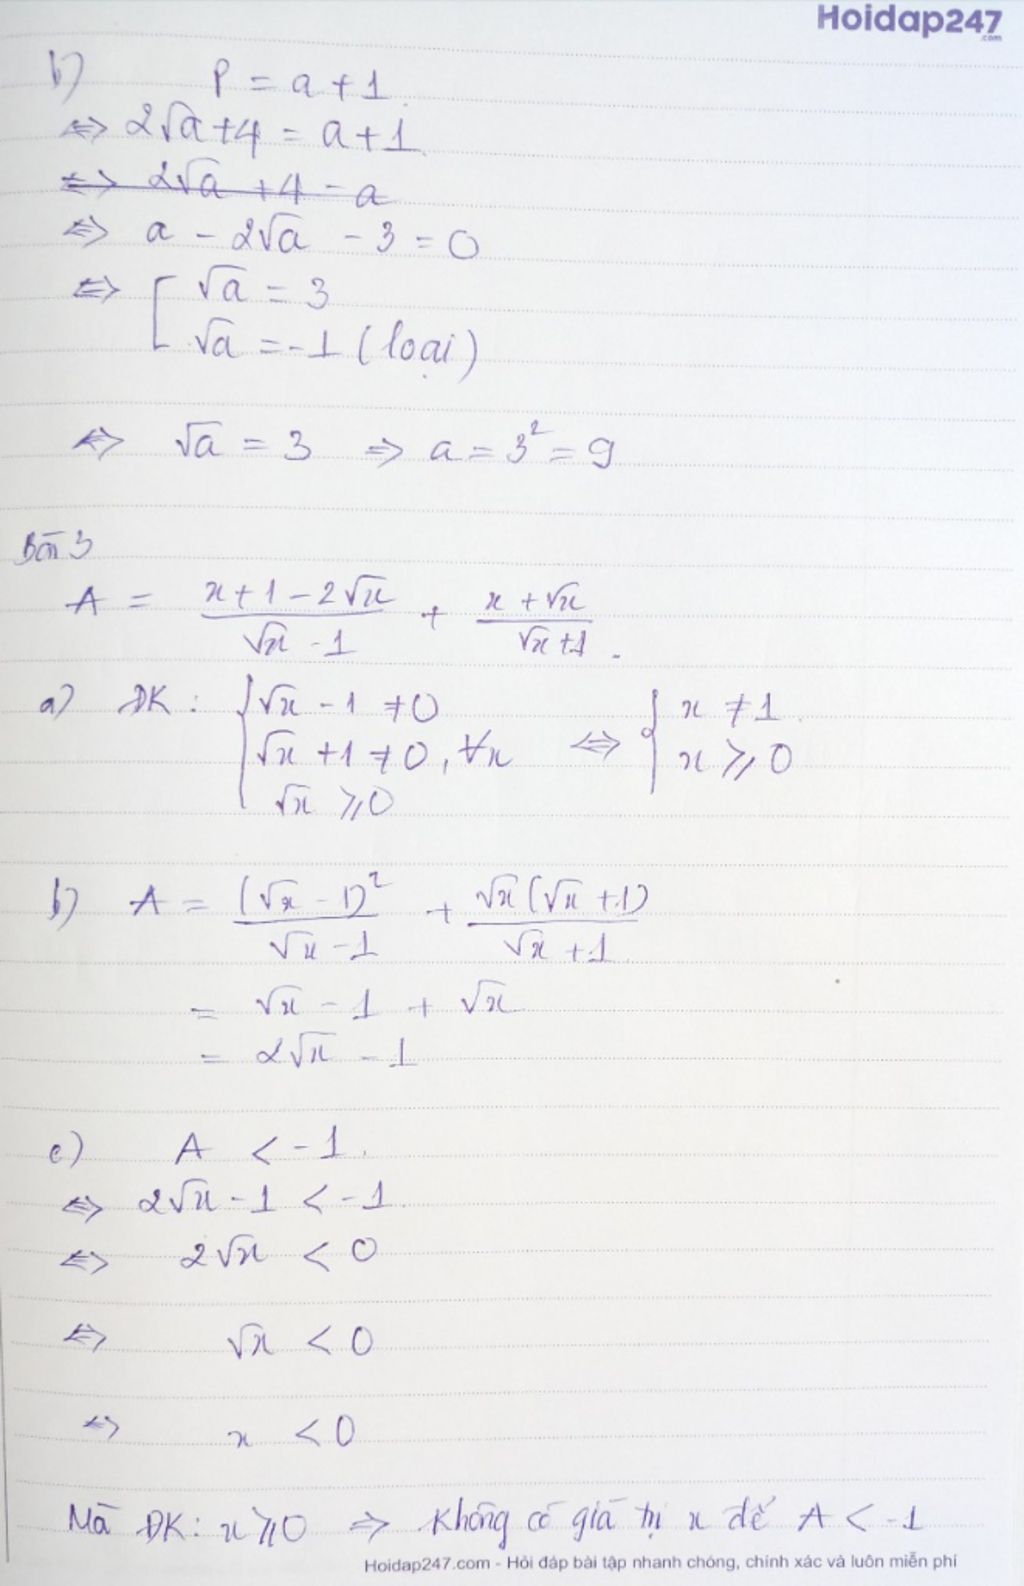 Hoidap247
.com
b) P = a + 1.
⇔ 2√a + 4 = a + 1.
⇔ 2√a + 4 - a
⇔ a - 2√a - 3 = 0
⇔ [ √a = 3
√a = -1 (loại)
⇔ √a = 3 ⇒ a = 3² = 9
Bài 3
A = (x + 1 - 2√x)/(√x - 1) + (x + √x)/(√x + 1).
a) ĐK : { √x - 1 ≠ 0
√x + 1 ≠ 0, ∀x ⇔ { x ≠ 1
√x ≥ 0 x ≥ 0
b) A = (√x - 1)²/(√x - 1) + √x(√x + 1)/(√x + 1)
= √x - 1 + √x
= 2√x - 1
c) A < -1.
⇔ 2√x - 1 < -1.
⇔ 2√x < 0
⇔ √x < 0
⇔ x < 0
Mà ĐK: x ≥ 0 ⇒ Không có giá trị x để A < -1
Hoidap247.com - Hỏi đáp bài tập nhanh chóng, chính xác và luôn miễn phí